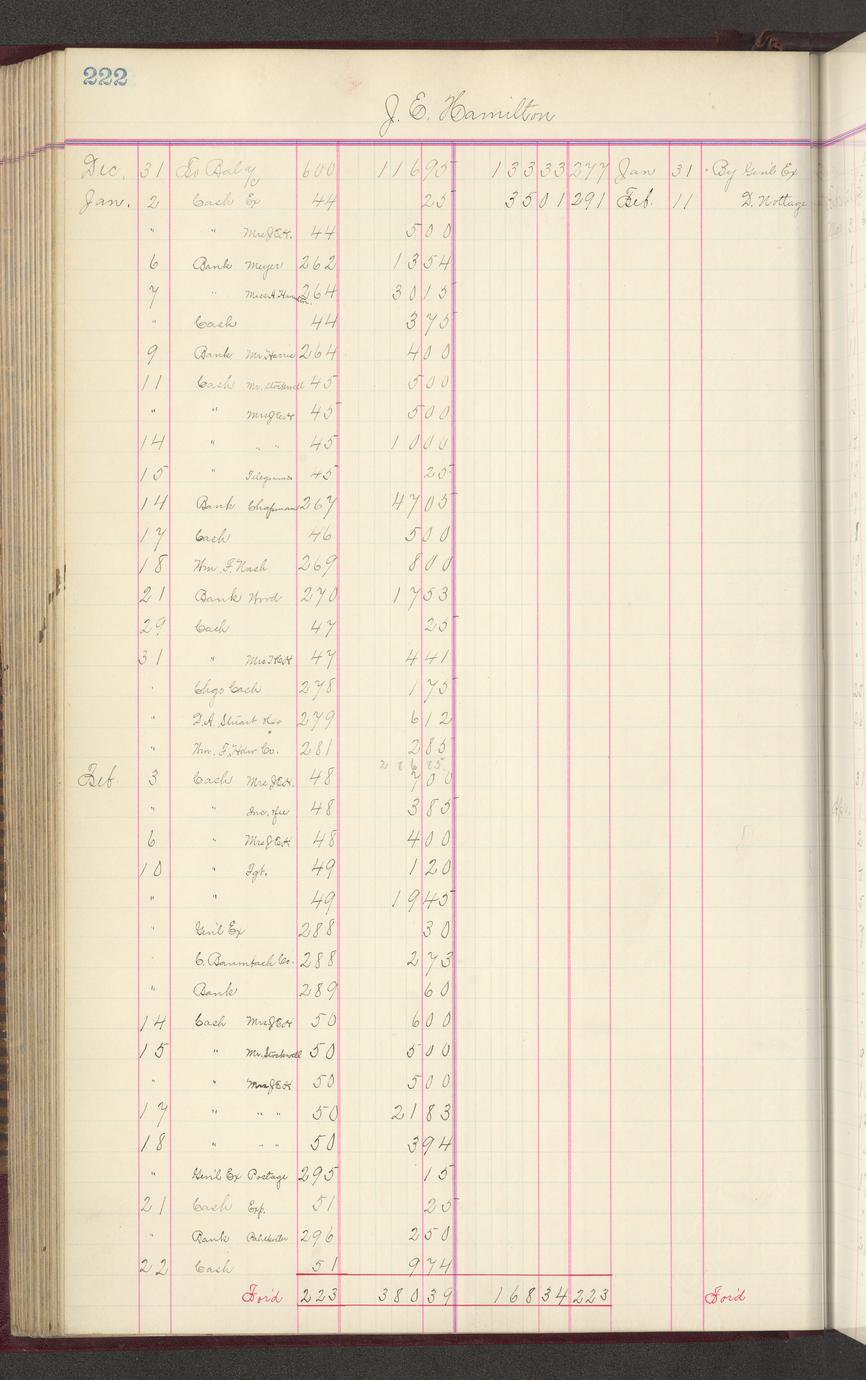 222
J. E. Hamilton
Dec. 31 To Bal 600 116 95 133 33 277 Jan 31 By Gen'l Ex
Jan. 2 Cash Ex 44 25 35 01 291 Feb. 11 D. Nottage
" " Mrs J.E.H. 44 5 00
6 Bank Meyer 262 13 54
7 " Miss A. Hamilton 264 30 15
" Cash 44 3 75
9 Bank Mr. Harris 264 4 00
11 Cash Mr. Stockwell 45 5 00
" " Mrs J.E.H 45 5 00
14 " " " 45 10 00
15 " Telegrams 45 25
14 Bank Chapman 267 47 05
17 Cash 46 5 00
18 Wm. F. Nash 269 8 00
21 Bank Wood 270 17 53
29 Cash 47 25
31 " Mrs J.E.H 47 4 41
" Chgo Cash 278 1 75
" D.A. Stuart 279 6 12
" Wm. F. Co. 281 2 85
286 85
Feb. 3 Cash Mrs J.E.H. 48 7 00
" " Inc. 48 3 85
6 " Mrs J.E.H 48 4 00
10 " Fgt. 49 1 20
" " 49 19 45
" Gen'l Ex 288 30
" C. Baumbach Co. 288 2 73
" Bank 289 60
14 Cash Mrs J.E.H 50 6 00
15 " Mr. Stockwell 50 5 00
" " Mrs J.E.H 50 5 00
17 " " " 50 21 83
18 " " " 50 3 94
" Gen'l Ex Postage 295 15
21 Cash Exp. 51 25
" Bank 296 2 50
22 Cash 51 9 74
For'd 223 380 39 168 34 223 For'd